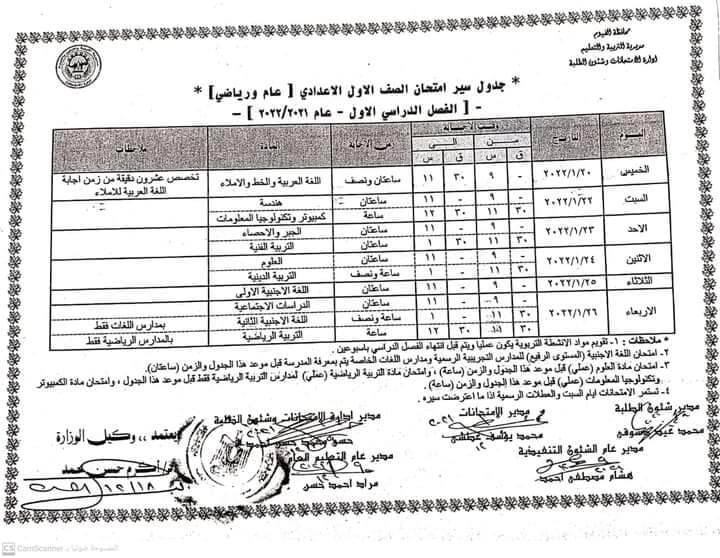 محافظة الفيوم
مديرية التربية والتعليم
ادارة الامتحانات وشئون الطلبة
* جدول سير امتحان الصف الاول الاعدادي [ عام ورياضي] *
- [ الفصل الدراسي الاول - عام ٢٠٢٢/٢٠٢١ ] -
اليوم التاريخ وقت الاجابة زمن الاجابة المادة ملاحظات
من الى
ق س ق س
الخميس ٢٠٢٢/١/٢٠ - ٩ ٣٠ ١١ ساعتان ونصف اللغة العربية والخط والاملاء تخصص عشرون دقيقة من زمن اجابة اللغة العربية للاملاء
السبت ٢٠٢٢/١/٢٢ - ٩ - ١١ ساعتان هندسة
٣٠ ١١ ٣٠ ١٢ ساعة كمبيوتر وتكنولوجيا المعلومات
الاحد ٢٠٢٢/١/٢٣ - ٩ - ١١ ساعتان الجبر والاحصاء
٣٠ ١١ ٣٠ ١ ساعتان التربية الفنية
الاثنين ٢٠٢٢/١/٢٤ - ٩ - ١١ ساعتان العلوم
٣٠ ١١ - ١ ساعة ونصف التربية الدينية
الثلاثاء ٢٠٢٢/١/٢٥ - ٩ - ١١ ساعتان اللغة الاجنبية الاولى
الاربعاء ٢٠٢٢/١/٢٦ - ٩ - ١١ ساعتان الدراسات الاجتماعية
٣٠ ١١ - ١ ساعة ونصف اللغة الاجنبية الثانية بمدارس اللغات فقط
٣٠ ١١ ٣٠ ١٢ ساعة التربية الرياضية بالمدارس الرياضية فقط
* ملاحظات : ١- تقويم مواد الانشطة التربوية يكون عمليا ويتم قبل انتهاء الفصل الدراسي باسبوعين .
٢- امتحان اللغة الاجنبية (المستوى الرفيع) للمدارس التجريبية الرسمية ومدارس اللغات الخاصة يتم بمعرفة المدرسة قبل موعد هذا الجدول والزمن (ساعتان).
٣- امتحان مادة العلوم (عملي) قبل موعد هذا الجدول والزمن (ساعة) ، وامتحان مادة التربية الرياضية (عملي) لمدارس التربية الرياضية فقط قبل موعد هذا الجدول ، وامتحان مادة الكمبيوتر
وتكنولوجيا المعلومات (عملي) قبل موعد هذا الجدول والزمن (ساعة) .
٤ - تستمر الامتحانات ايام السبت والعطلات الرسمية اذا ما اعترضت سيره .
مدير شئون الطلبة
مدير الامتحانات
محمد يوسف
مدير ادارة الامتحانات وشئون الطلبة
يعتمد ،، وكيل الوزارة
مدير عام الشئون التنفيذية
هشام مصطفى احمد
مدير عام التعليم العام
مراد احمد حسن
أ/ اكرم حسن محمد
CS CamScanner الممسوحة ضوئيا بـ